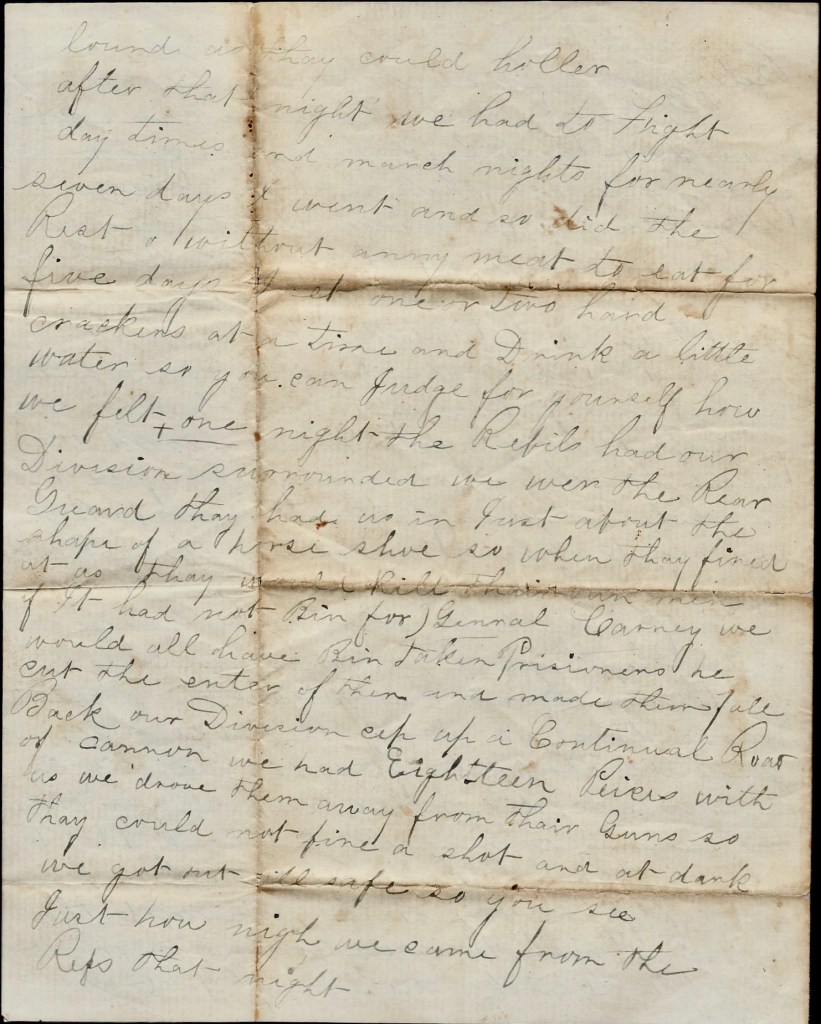 lound as thay could holler
after that night we had to Fight
day times and march nights for nearly
seven days I went and so did the
Rest without anny meat to eat for
five days I et one or two hard
crackers at a time and Drink a little
water so you can Judge for yourself how
we felt + one night the Rebils had our
Division surrounded we wer the Rear
Guard thay had us in Just about the
shape of a horse shoe so when thay fired
at us thay would kill thair own men
if It had not Bin for) Gennal Carney we
would all have Bin taken Prisioners he
cut the enter of them and made them fall
Back our Division cep up a Continual Roar
of cannon we had Eighteen Peices with
us we drove them away from thair Guns so
thay could not fire a shot and at dark
we got out all safe so you see
Just how nigh we came from the
Rebs that night